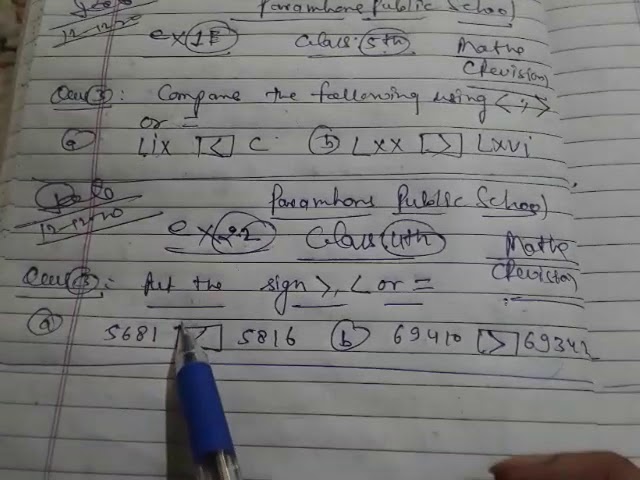 Paramhans Public School
12-12-20
ex 1F Class: 5th Maths
(Revision)
Ques 3: Compare the following using < , >
or =
(a) Lix [<] C (b) Lxx [>] Lxvi
Paramhans Public School
12-12-20
ex 22 Class 4th Maths
(Revision)
Ques 3: Put the sign >, < or =
(a) 5681 [<] 5816 (b) 69410 [>] 69342